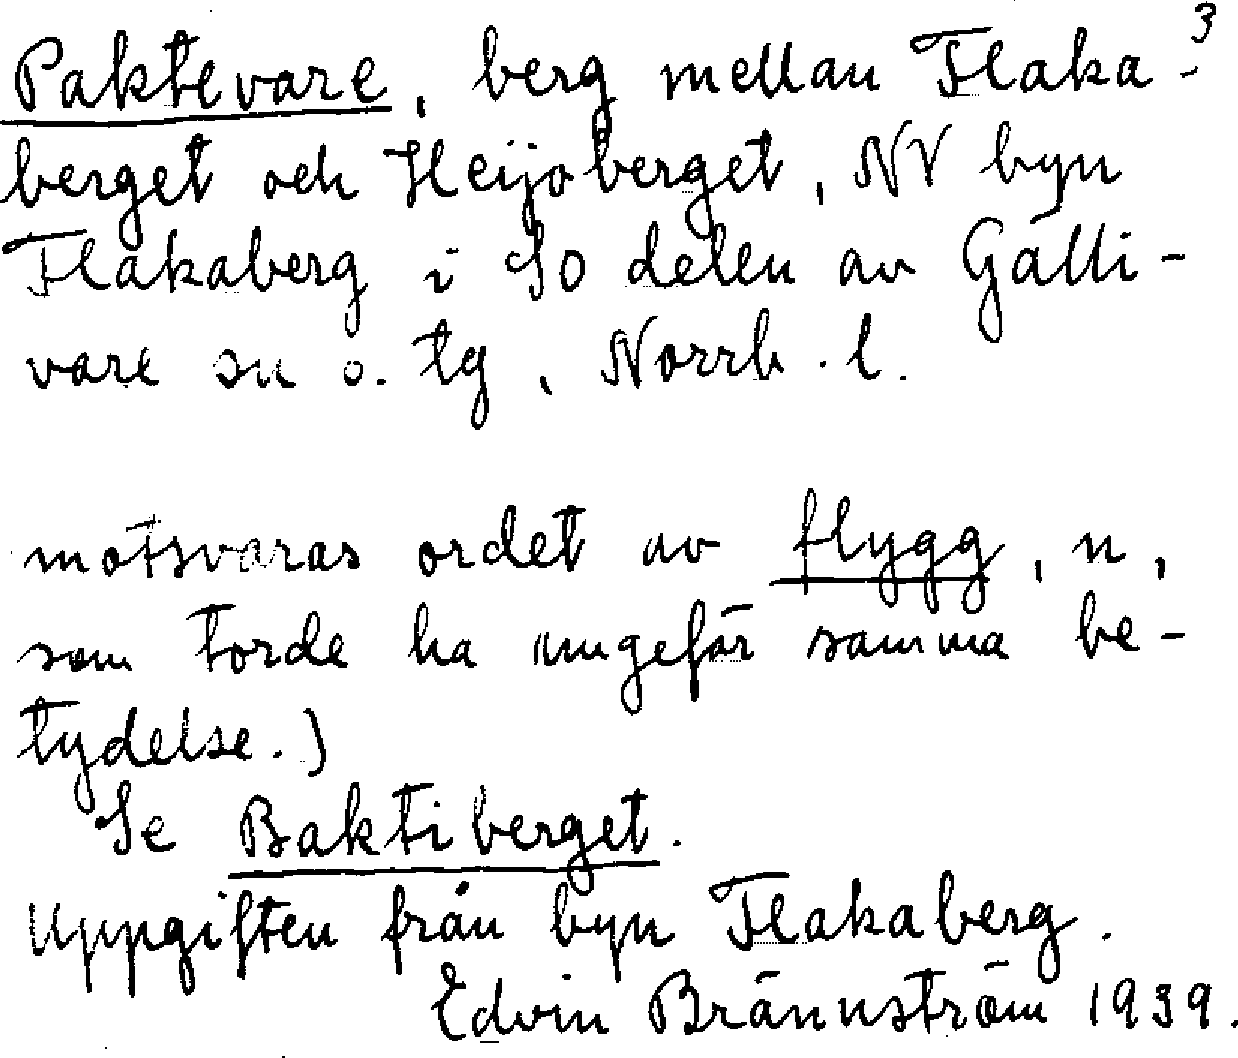 3
Paktevare, berg mellan Flaka-
berget och Heijoberget, NV byn
Flakaberg i SO delen av Gälli-
vare sn o. tg, Norrb. l.
motsvaras ordet av flygg, n,
som torde ha ungefär samma be-
tydelse.)
Se Baktiberget.
Uppgiften från byn Flakaberg.
Edvin Brännström 1939.